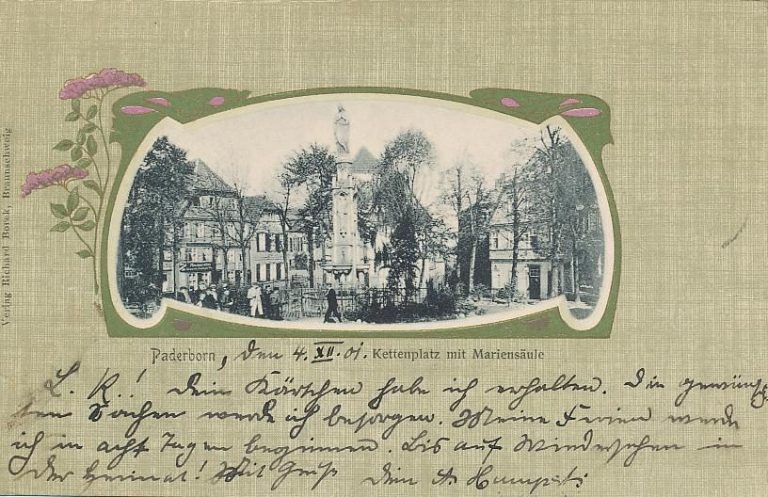 Verlag Richard Borek, Braunschweig
Paderborn, den 4. XII. 01. Kettenplatz mit Mariensäule
L. K.! Dein Kärtchen habe ich erhalten. Die gewünsch-
ten Sachen werde ich besorgen. Meine Ferien werde
ich in acht Tagen beginnen. Bis auf Wiedersehen in
der Heimat! Mit Gruß dein